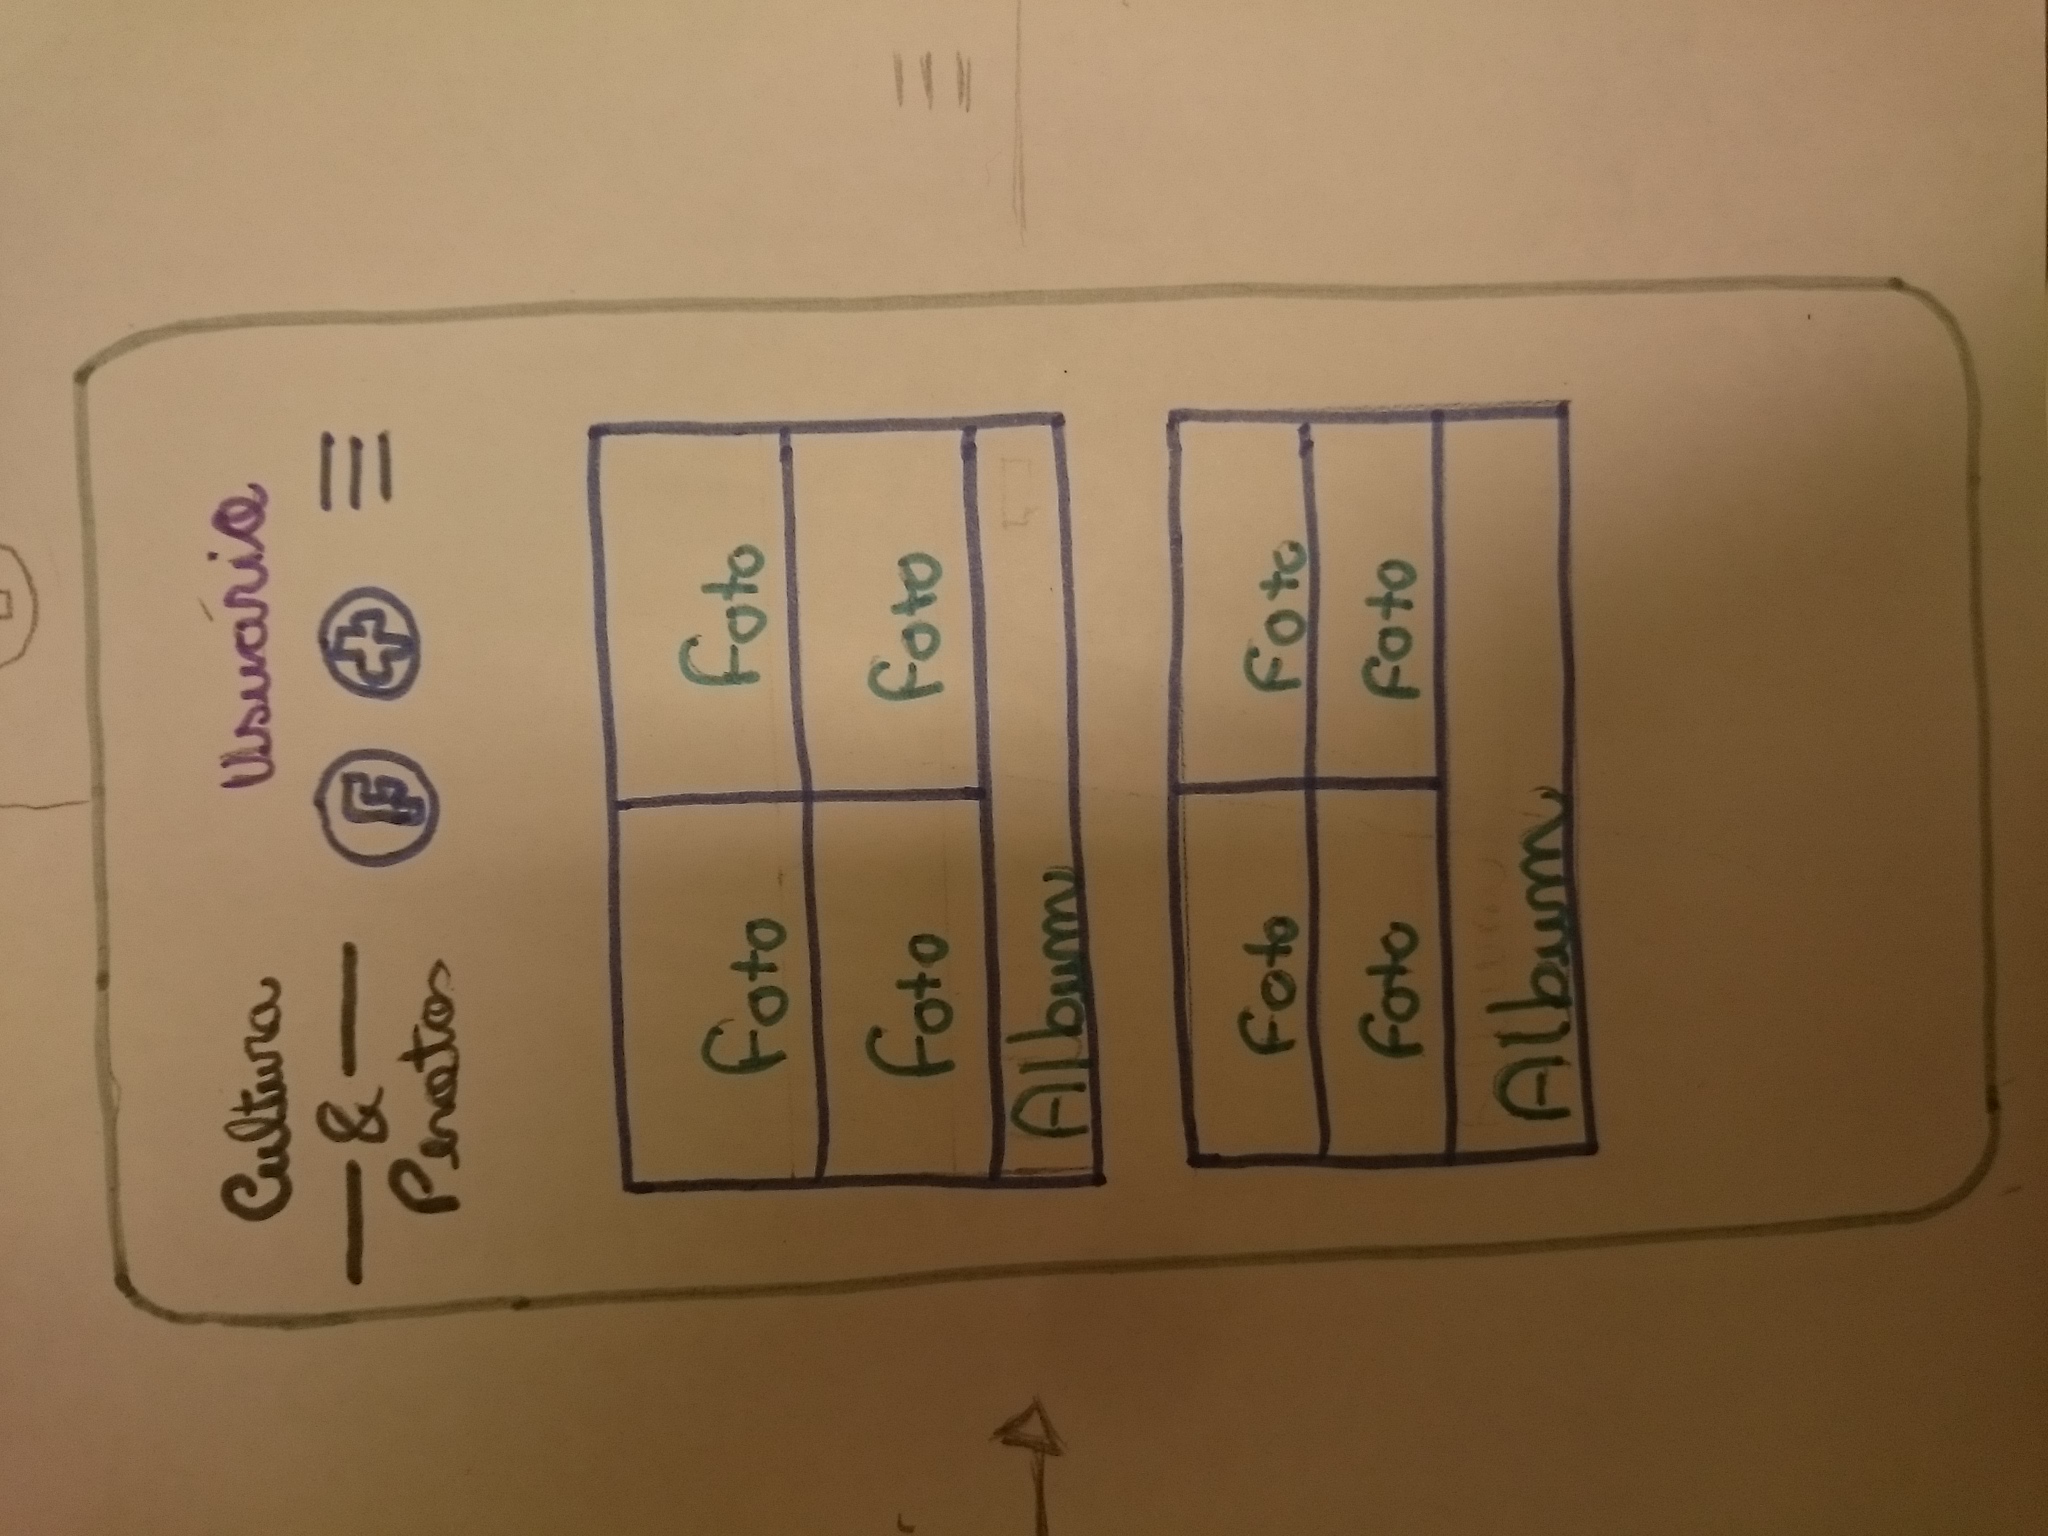 Cultura
&
Penatos
Usuário
F
foto foto
foto foto
Album
Foto Foto
foto foto
Album